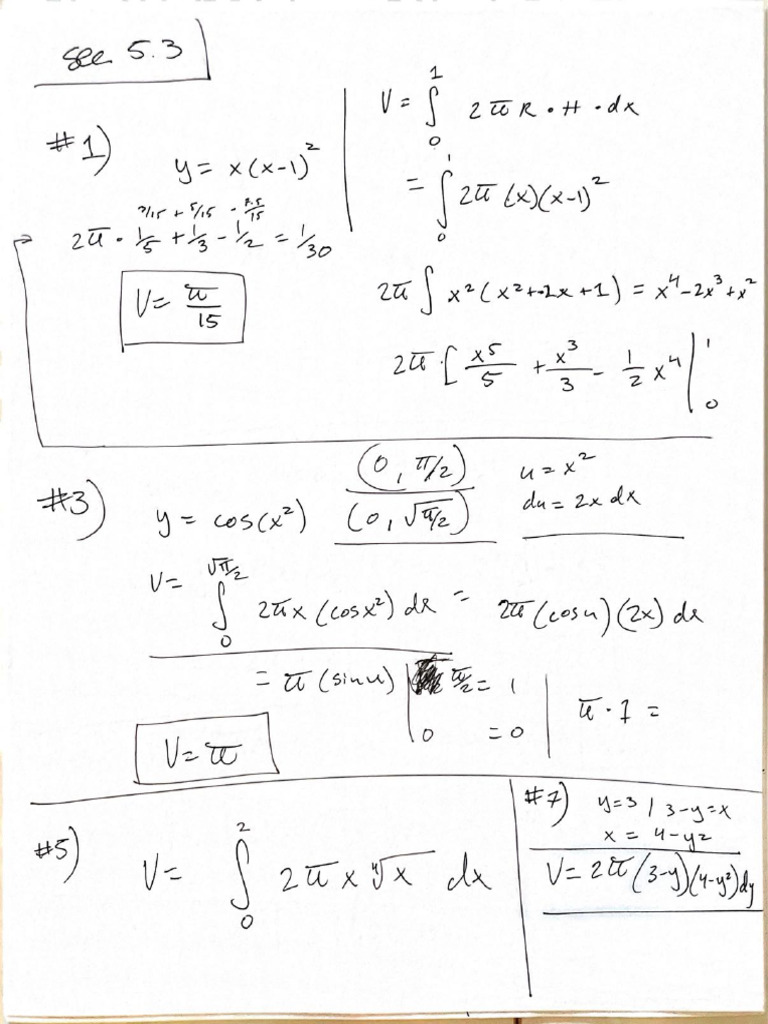 sec 5.3
#1)
y = x(x-1)²
2/15 + 5/15 - 7.5/15
2π · 1/5 + 1/3 - 1/2 = 1/30
V = π/15
V = ∫₀¹ 2πR · H · dx
= ∫₀¹ 2π(x)(x-1)²
2π ∫ x²(x²+-2x+1) = x⁴-2x³+x²
2π · [x⁵/5 + x³/3 - 1/2 x⁴ |₀¹
#3)
y = cos(x²)
(0, π/2)
(0, √π/2)
u = x²
du = 2x dx
V = ∫₀^√π/2 2πx(cosx²)dx = 2π(cosu)(2x)dx
= π(sinu) | π/2 = 1
0 = 0
π · 1 =
V = π
#5)
V = ∫₀² 2πx ⁴√x dx
#7)
y=3 / 3-y=x
x = 4-y²
V = 2π(3-y)(4-y²)dy